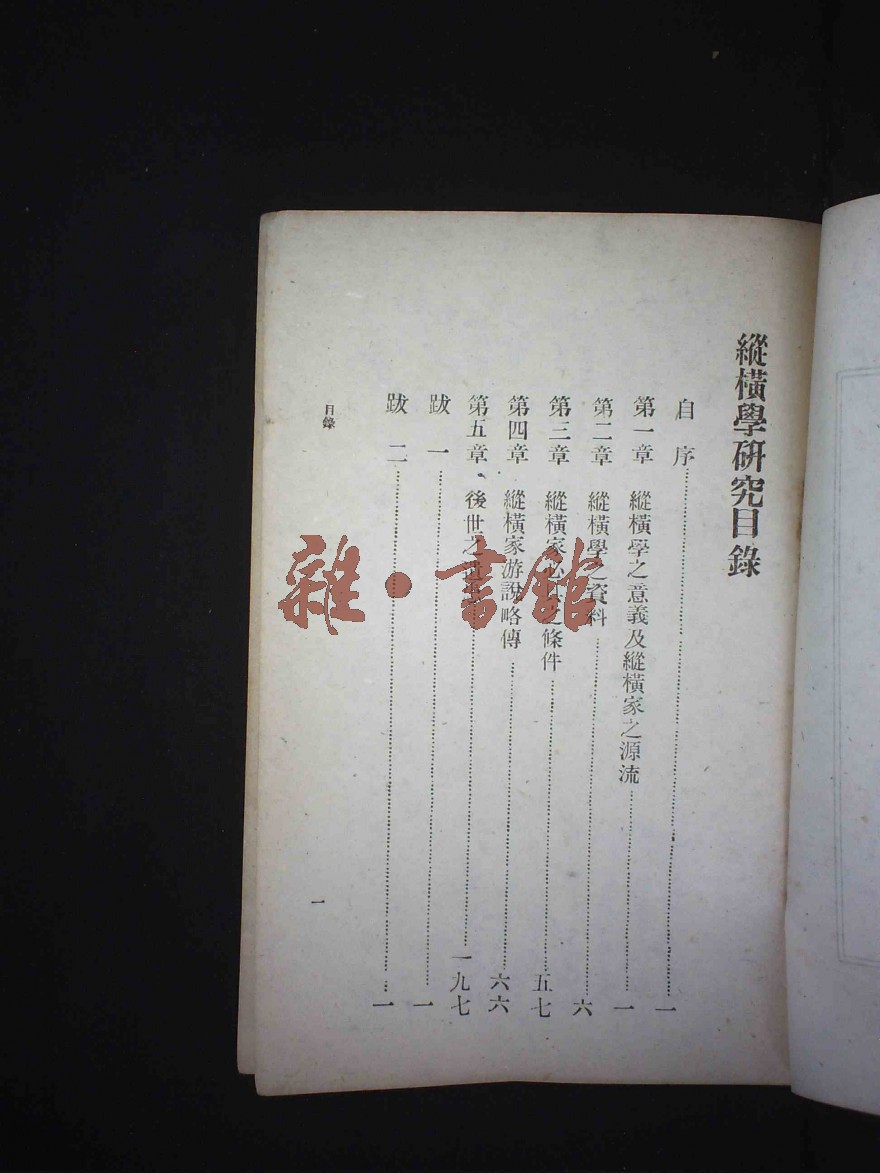 縱橫學研究目錄
自序……一
第一章 縱橫學之意義及縱橫家之源流……一
第二章 縱橫學之資料……六
第三章 縱橫家必 之條件……五七
第四章 縱橫家游說略傳……六六
第五章 後世之 ……一九七
跋一……一
跋二……一
目錄
一
雜·書館